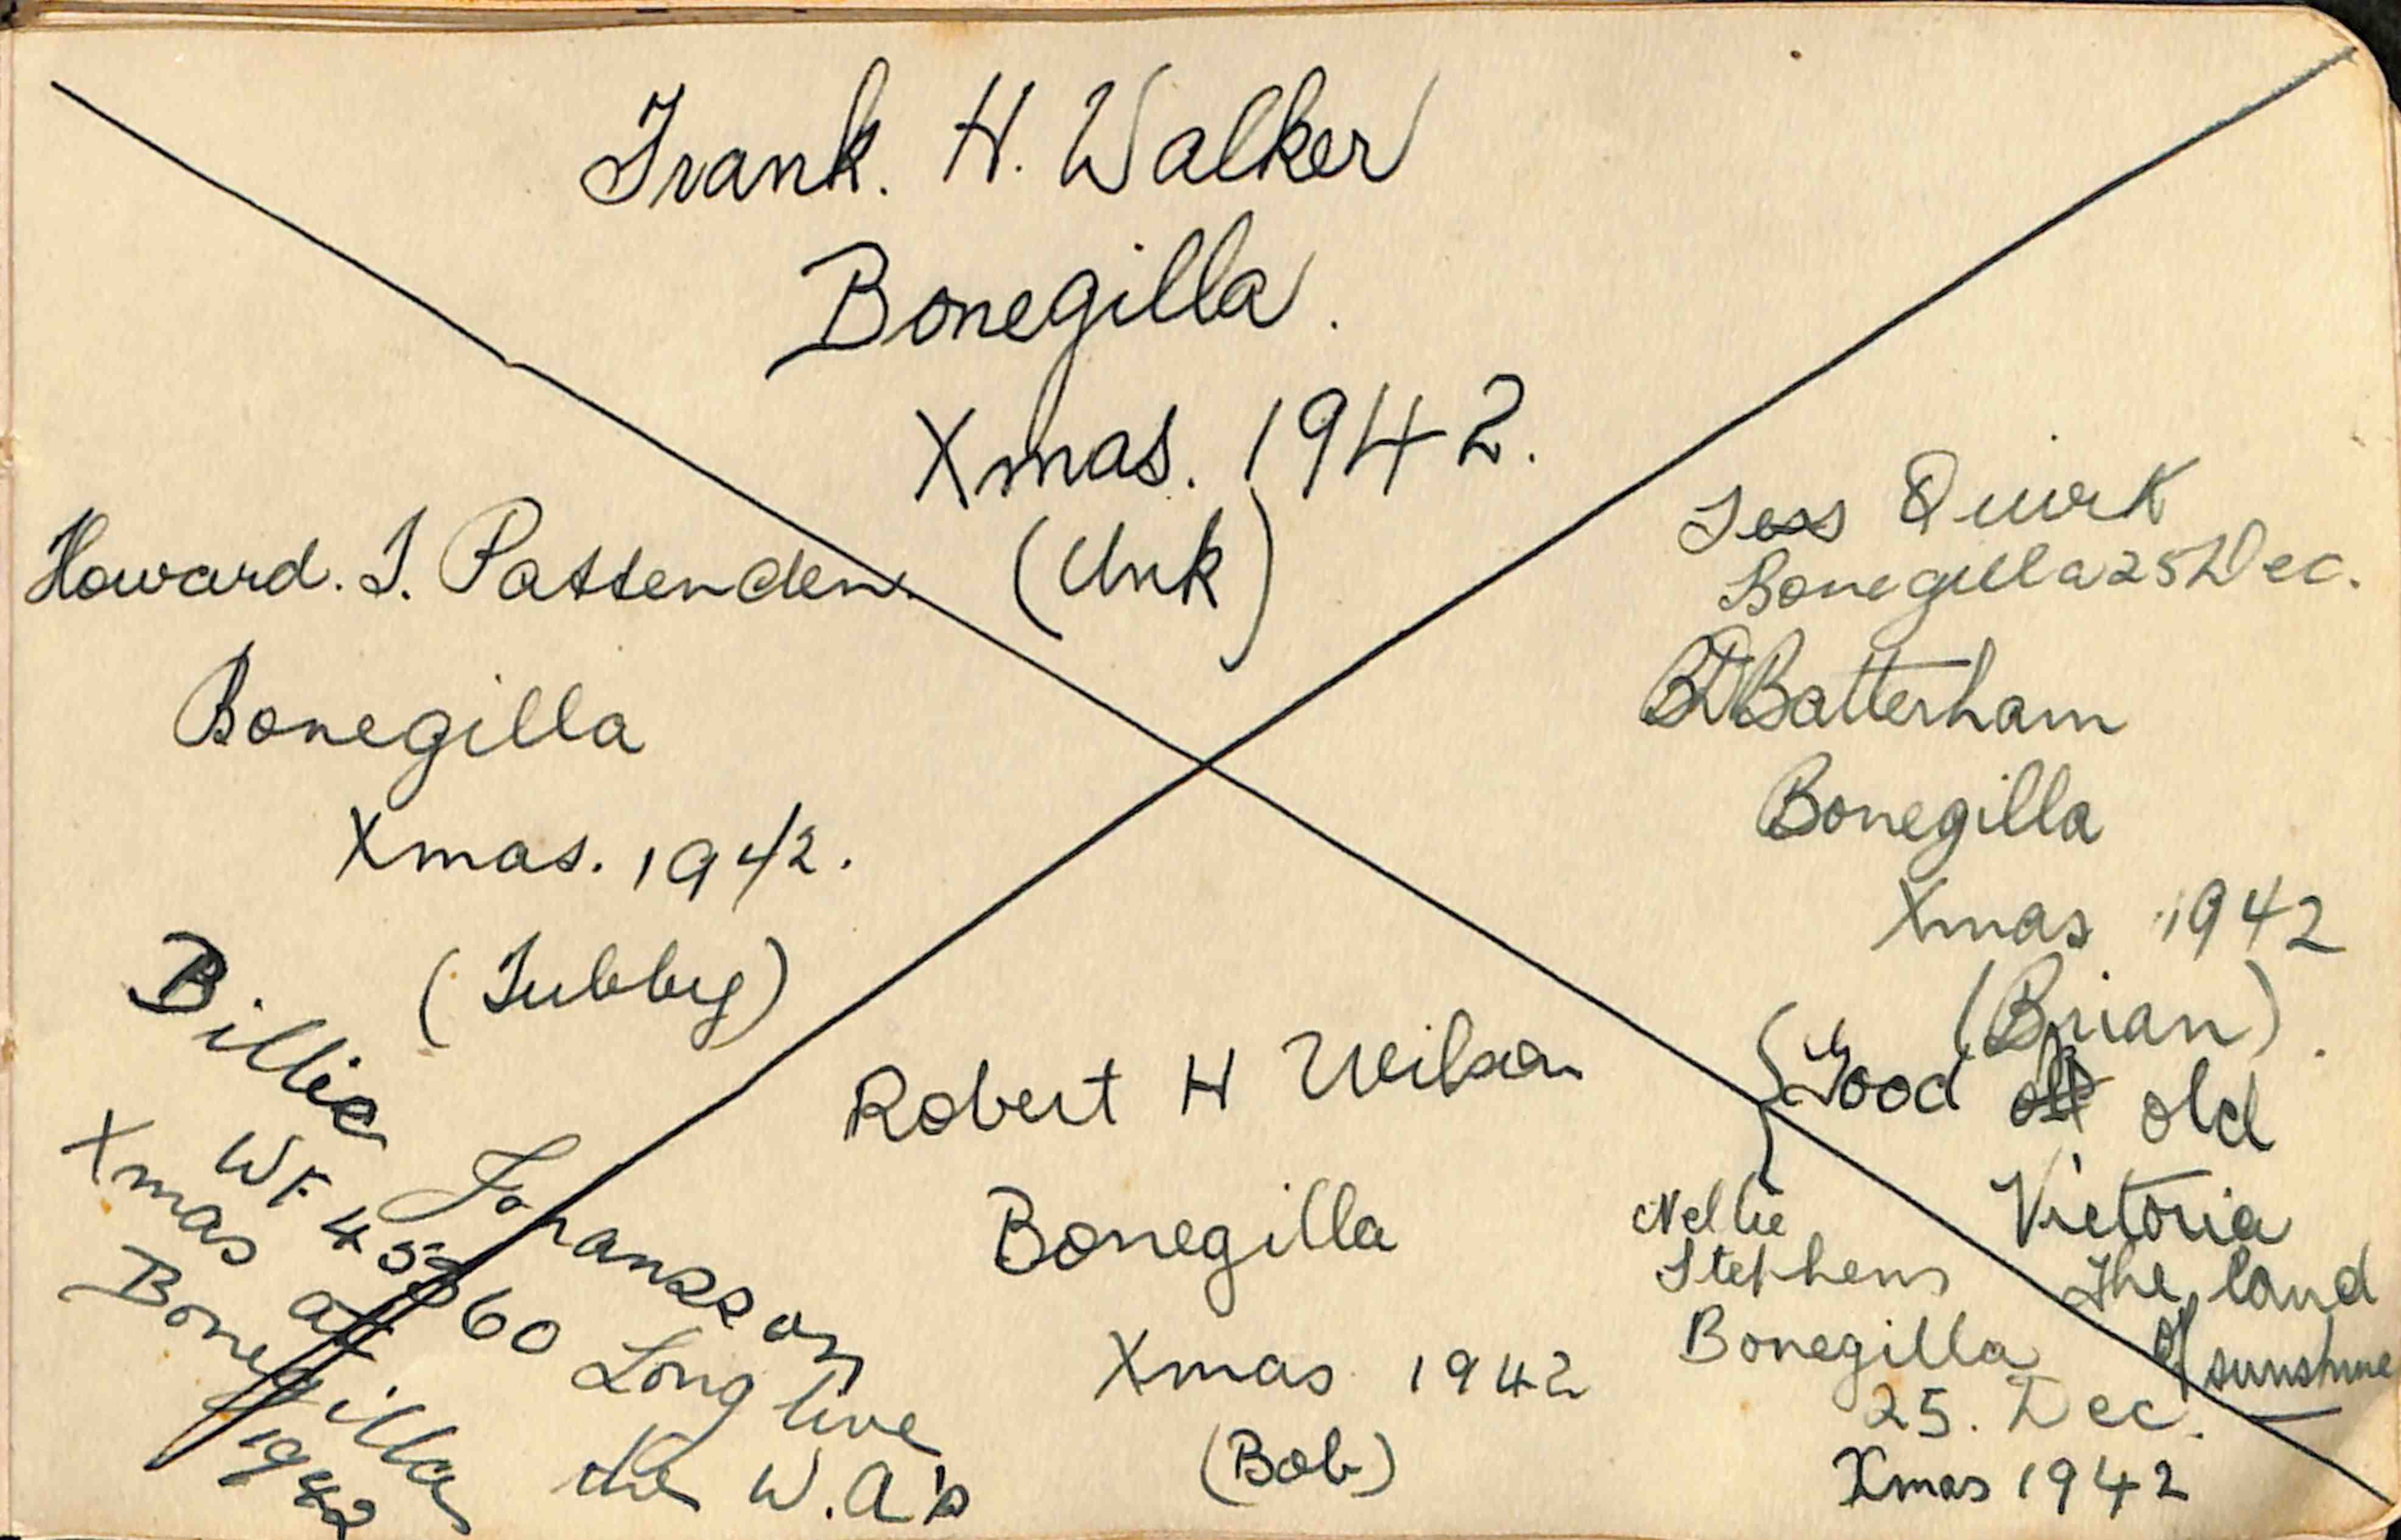 Frank. H. Walker
Bonegilla.
Xmas. 1942.
(Unk)
Howard. J. Pattenden.
Bonegilla
Xmas. 1942.
(Tubby)
Jess Quirk
Bonegilla 25 Dec.
Batterham
Bonegilla
Xmas 1942
(Brian).
Good old
Victoria
The land
of sunshine
Billie Johansson
WF 45860
Xmas at
Bonegilla
1942
Long live
the W.A's
Robert H Wilson
Bonegilla
Xmas 1942
(Bob)
Nellie
Stephens
Bonegilla
25. Dec.
Xmas 1942